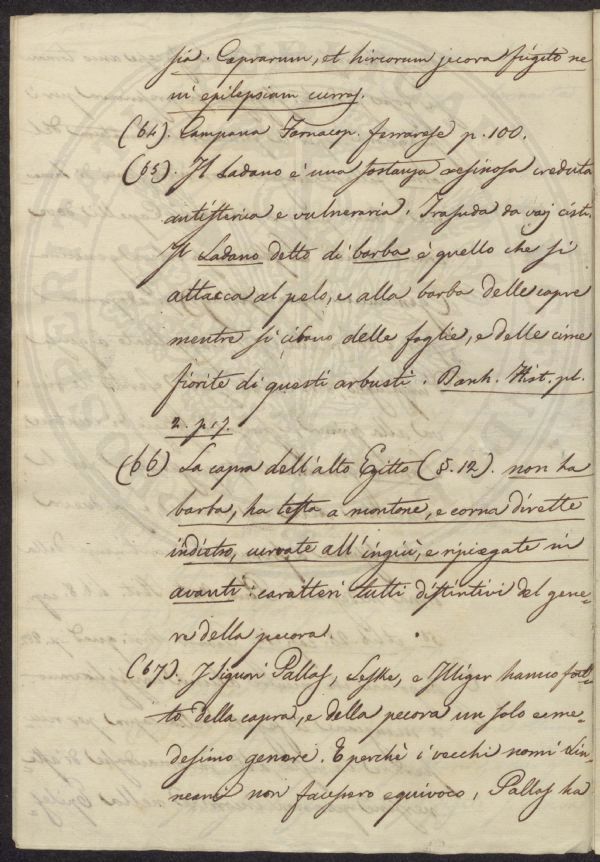 sia. Caprarum, et hircorum jecora frigito ne
ni epilepsiam curras.
(64). Campana Farmacop. ferrarese p. 100.
(65). Il Ladano è una sostanza resinosa creduta
antisterica e vulneraria. Trasuda da varj cisti.
Il Ladano detto di barba è quello che si
attacca al pelo, e alla barba delle capre
mentre si cibano delle foglie, e delle cime
fiorite di questi arbusti. Bauh. Hist. pl.
2. p. 7.
(66) La capra dell'alto Egitto (§. 12). non ha
barba, ha testa a montone, e corna dirette
indietro, curvate all'ingiù, e ripiegate in
avanti: caratteri tutti distintivi del gene-
re della pecora.
(67). I signori Pallas, Leske, e Illiger hanno fat-
to della capra, e della pecora un solo e me-
desimo genere. E perchè i vecchi nomi Lin-
neani non facessero equivoco, Pallas ha